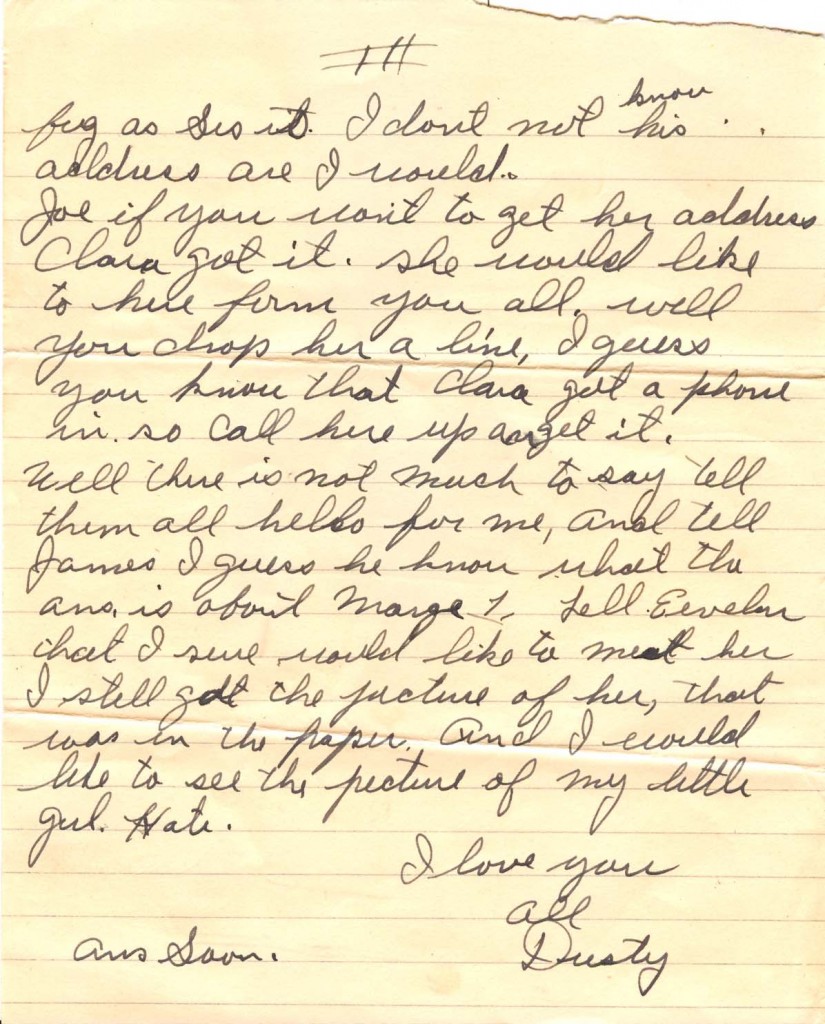 III
as Sis is. I dont not know his
address are I would.
Joe if you wont to get her address
Clara got it. she would like
to here form you all. well
you drop her a line, I guess
you know that Clara got a phone
in. so call here up an get it.
Well there is not much to say tell
them all hello for me, and tell
James I guess he know what the
ans. is about Marge
Tell Eevelen
that I sure would like to meat her
I still got the picture of her, that
was in the paper. And I would
like to see the pecture of my little
girl.
I love you
all
ans Soon. Dusty